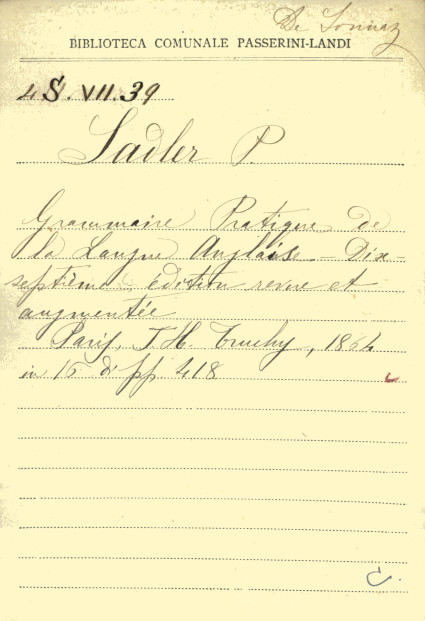 De Sonnaz
BIBLIOTECA COMUNALE PASSERINI-LANDI
4S.VII.39
Sadler P.
Grammaire Pratique de
la Langue Anglaise. — Dix-
septième edition revue et
augmentée
Paris, T. H. Truchy, 1864
in 16 di pp 418
C.